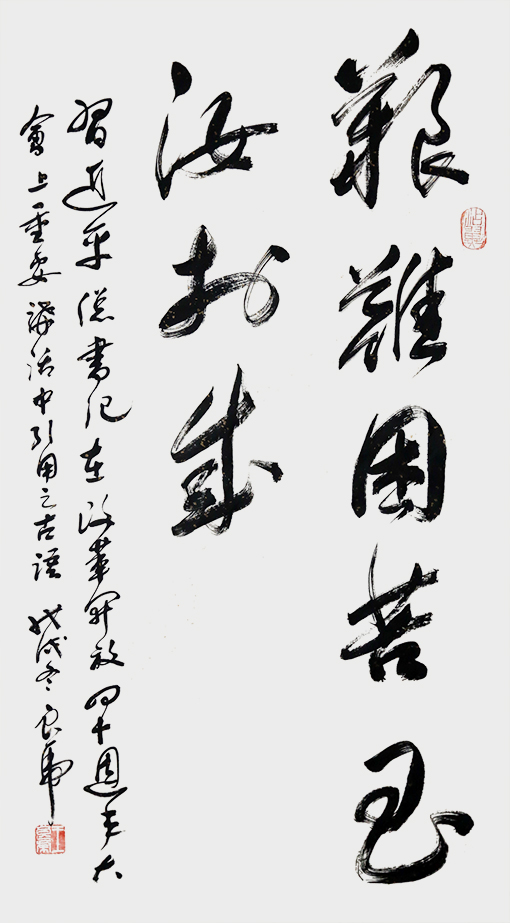 艱難困苦玉
汝於成
習近平總書記在改革開放四十週年大
會上重要講話中引用之古語 戊戌冬 良虎